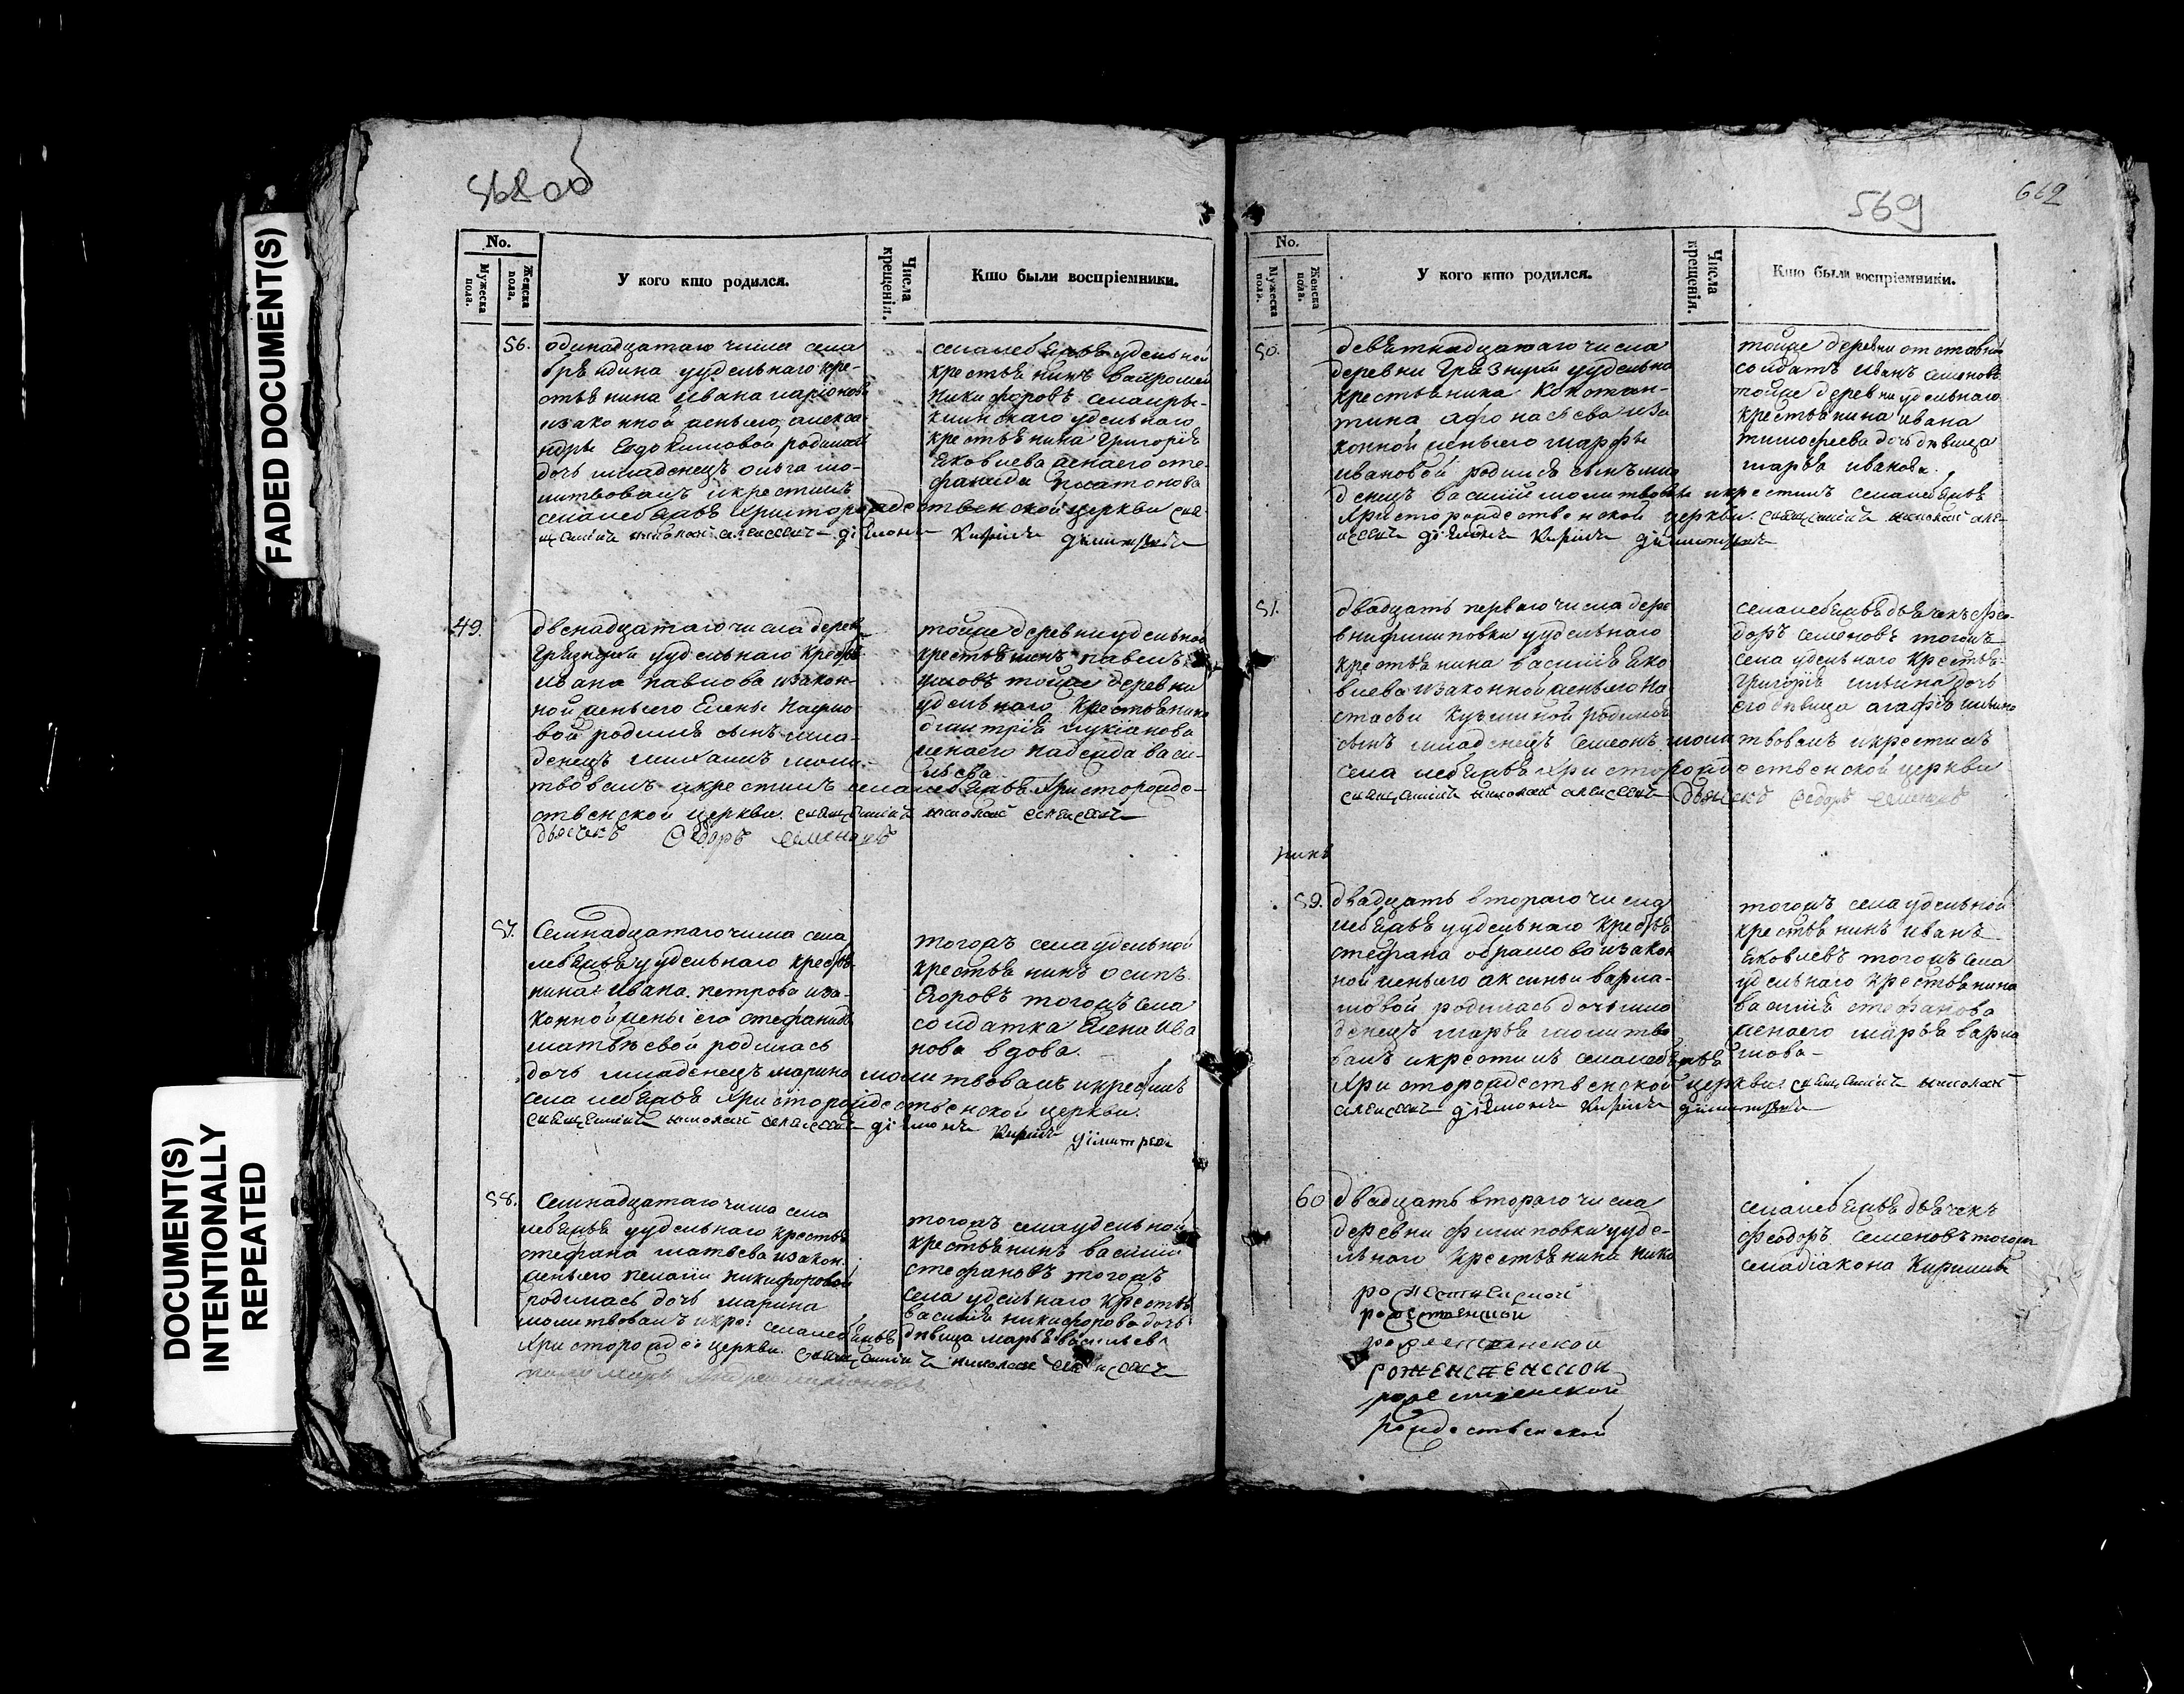 FADED DOCUMENT(S)
DOCUMENT(S)
INTENTIONALLY
REPEATED
568 об
No.
Мужеска пола.
Женска пола.
У кого кто родился.
Числа крещенія.
Кто были воспріемники.
56.
одинадцатаго числа села
у удельнаго кре-
стьянина Ивана иларіонова
изаконной женыего алекса
ндры Евдокимовой родилась
дочь младенецъ ольга мо-
литвовалъ икрестилъ
селалебяжья Христорождественской церкви свя-
щенникъ николай алексеевъ діаконъ Кирилъ димитревъ
селалебяжья удельной
крестьянинъ варфоломей
Никифоровъ
удельнаго
крестьянина Григорія
Яковлева женаего сте-
фанида платонова
49.
двенадцатаго числа дерев
Грязнухи уудельнаго крестья
ивана павлова изакон-
ной женыего Елены
вой родился сынъ мла-
денецъ михаилъ моли-
твовалъ икрестилъ селалебяжья Христорожде-
ственской церкви. священникъ николай алексеевъ
дьячекъ Ѳедоръ Семеновъ
тойже деревни удельной
крестьянинъ павелъ
тойже деревни
удельнаго крестьянина
дмитрія лукіанова
женаего надежда васи-
льева
57.
Семнадцатаго числа села
лебяжья уудельнаго крестья
нина Ивана петрова иза-
конной жены его стефаниды
матвеевой родилась
дочь младенецъ марина молитвовалъ икрестилъ
села лебяжья Христорождественской церкви.
священникъ николай алексеевъ діаконъ Кирилъ димитревъ
тогожъ села удельной
крестьянинъ осипъ
Егоровъ тогожъ села
солдатка Елена ива
нова вдова.
58.
Семнадцатаго числа села
лебяжья уудельнаго крестья
стефана матвева изакон.
женыего пелагіи никифоровой
родилась дочь марина
молитвовалъ икре: селалебяжья
Христорожде: церкви. священникъ николай алексеевъ
пономарь Андрей
тогожъ села удельной
крестьянинъ василій
стефановъ тогожъ
села удельнаго крестья
василія никифорова дочь
девица марья васильева
569
662
No.
Мужеска пола.
Женска пола.
У кого кто родился.
Числа крещенія.
Кто были воспріемники.
50.
девятнадцатаго числа
деревни Грязнухи уудельна
крестьянина Констан-
тина афонасьева иза
конной женыего марфы
ивановой родился сынъ мла
денецъ василій молитвовалъ икрестилъ селалебяжья
Христорождественской церкви. священникъ николай але-
ксеевъ діаконъ Кирилъ димитревъ
тойже деревни отставной
солдатъ иванъ семеновъ
тойже деревни удельнаго
крестьянина ивана
тимофеева дочь девица
марья иванова.
51.
двадцать перваго числа дере
вни филиповки уудельнаго
крестьянина василія Яко
влева изаконной женыего На
стасьи Кузминой родился
сынъ младенецъ Семеонъ молитвовалъ икрестилъ
села лебяжья Христорождественской церкви
священникъ николай алексеевъ дьячекъ Ѳедоръ Семеновъ
селалебяжья дьячекъ фео-
доръ семеновъ тогожъ
села удельнаго крестья-
Григорія ильина дочь
его девица агафья ильина
59.
двадцать втораго числа
лебяжья уудельнаго крестья
стефана абрамова изакон
ной женыего аксиньи варла-
мовой родилась дочь мла
денецъ марья молитво
валъ икрестилъ селалебяжья
Христорождественской церкви: священникъ николай
алексеевъ діаконъ Кирилъ димитревъ
тогожъ села удельной
крестьянинъ иванъ
Яковлевъ тогожъ села
удельнаго крестьянина
василія стефанова
женаего марья варла
мова
60
двадцать втораго числа
деревни филиповки ууде-
льнаго крестьянина нико
селалебяжья дьячекъ
феодоръ семеновъ тогожъ
села діакона Кирилы
рождественской